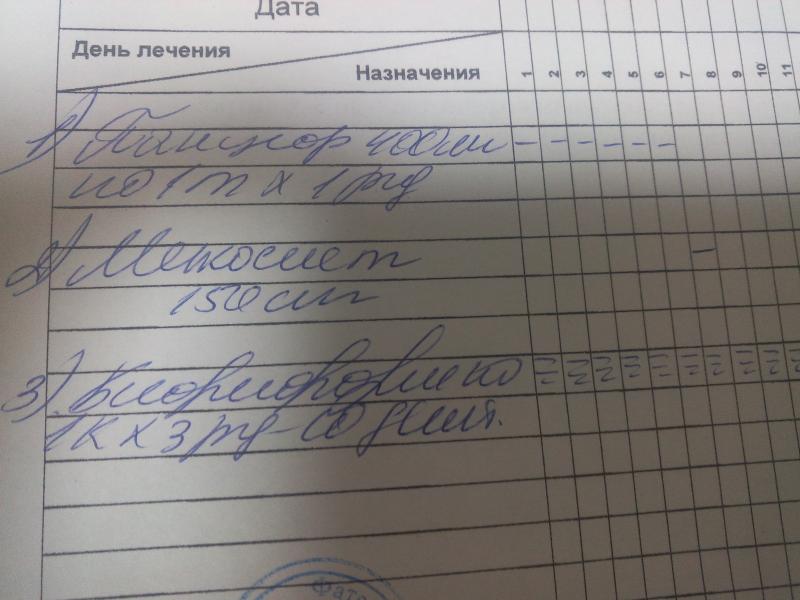 Дата
День лечения
Назначения
1 2 3 4 5 6 7 8 9 10 11
1) Панцнор 400мг
по 1т х 1 рд
2)
150 мг
3)
1к х 3 рд - 10 дней.
Фато